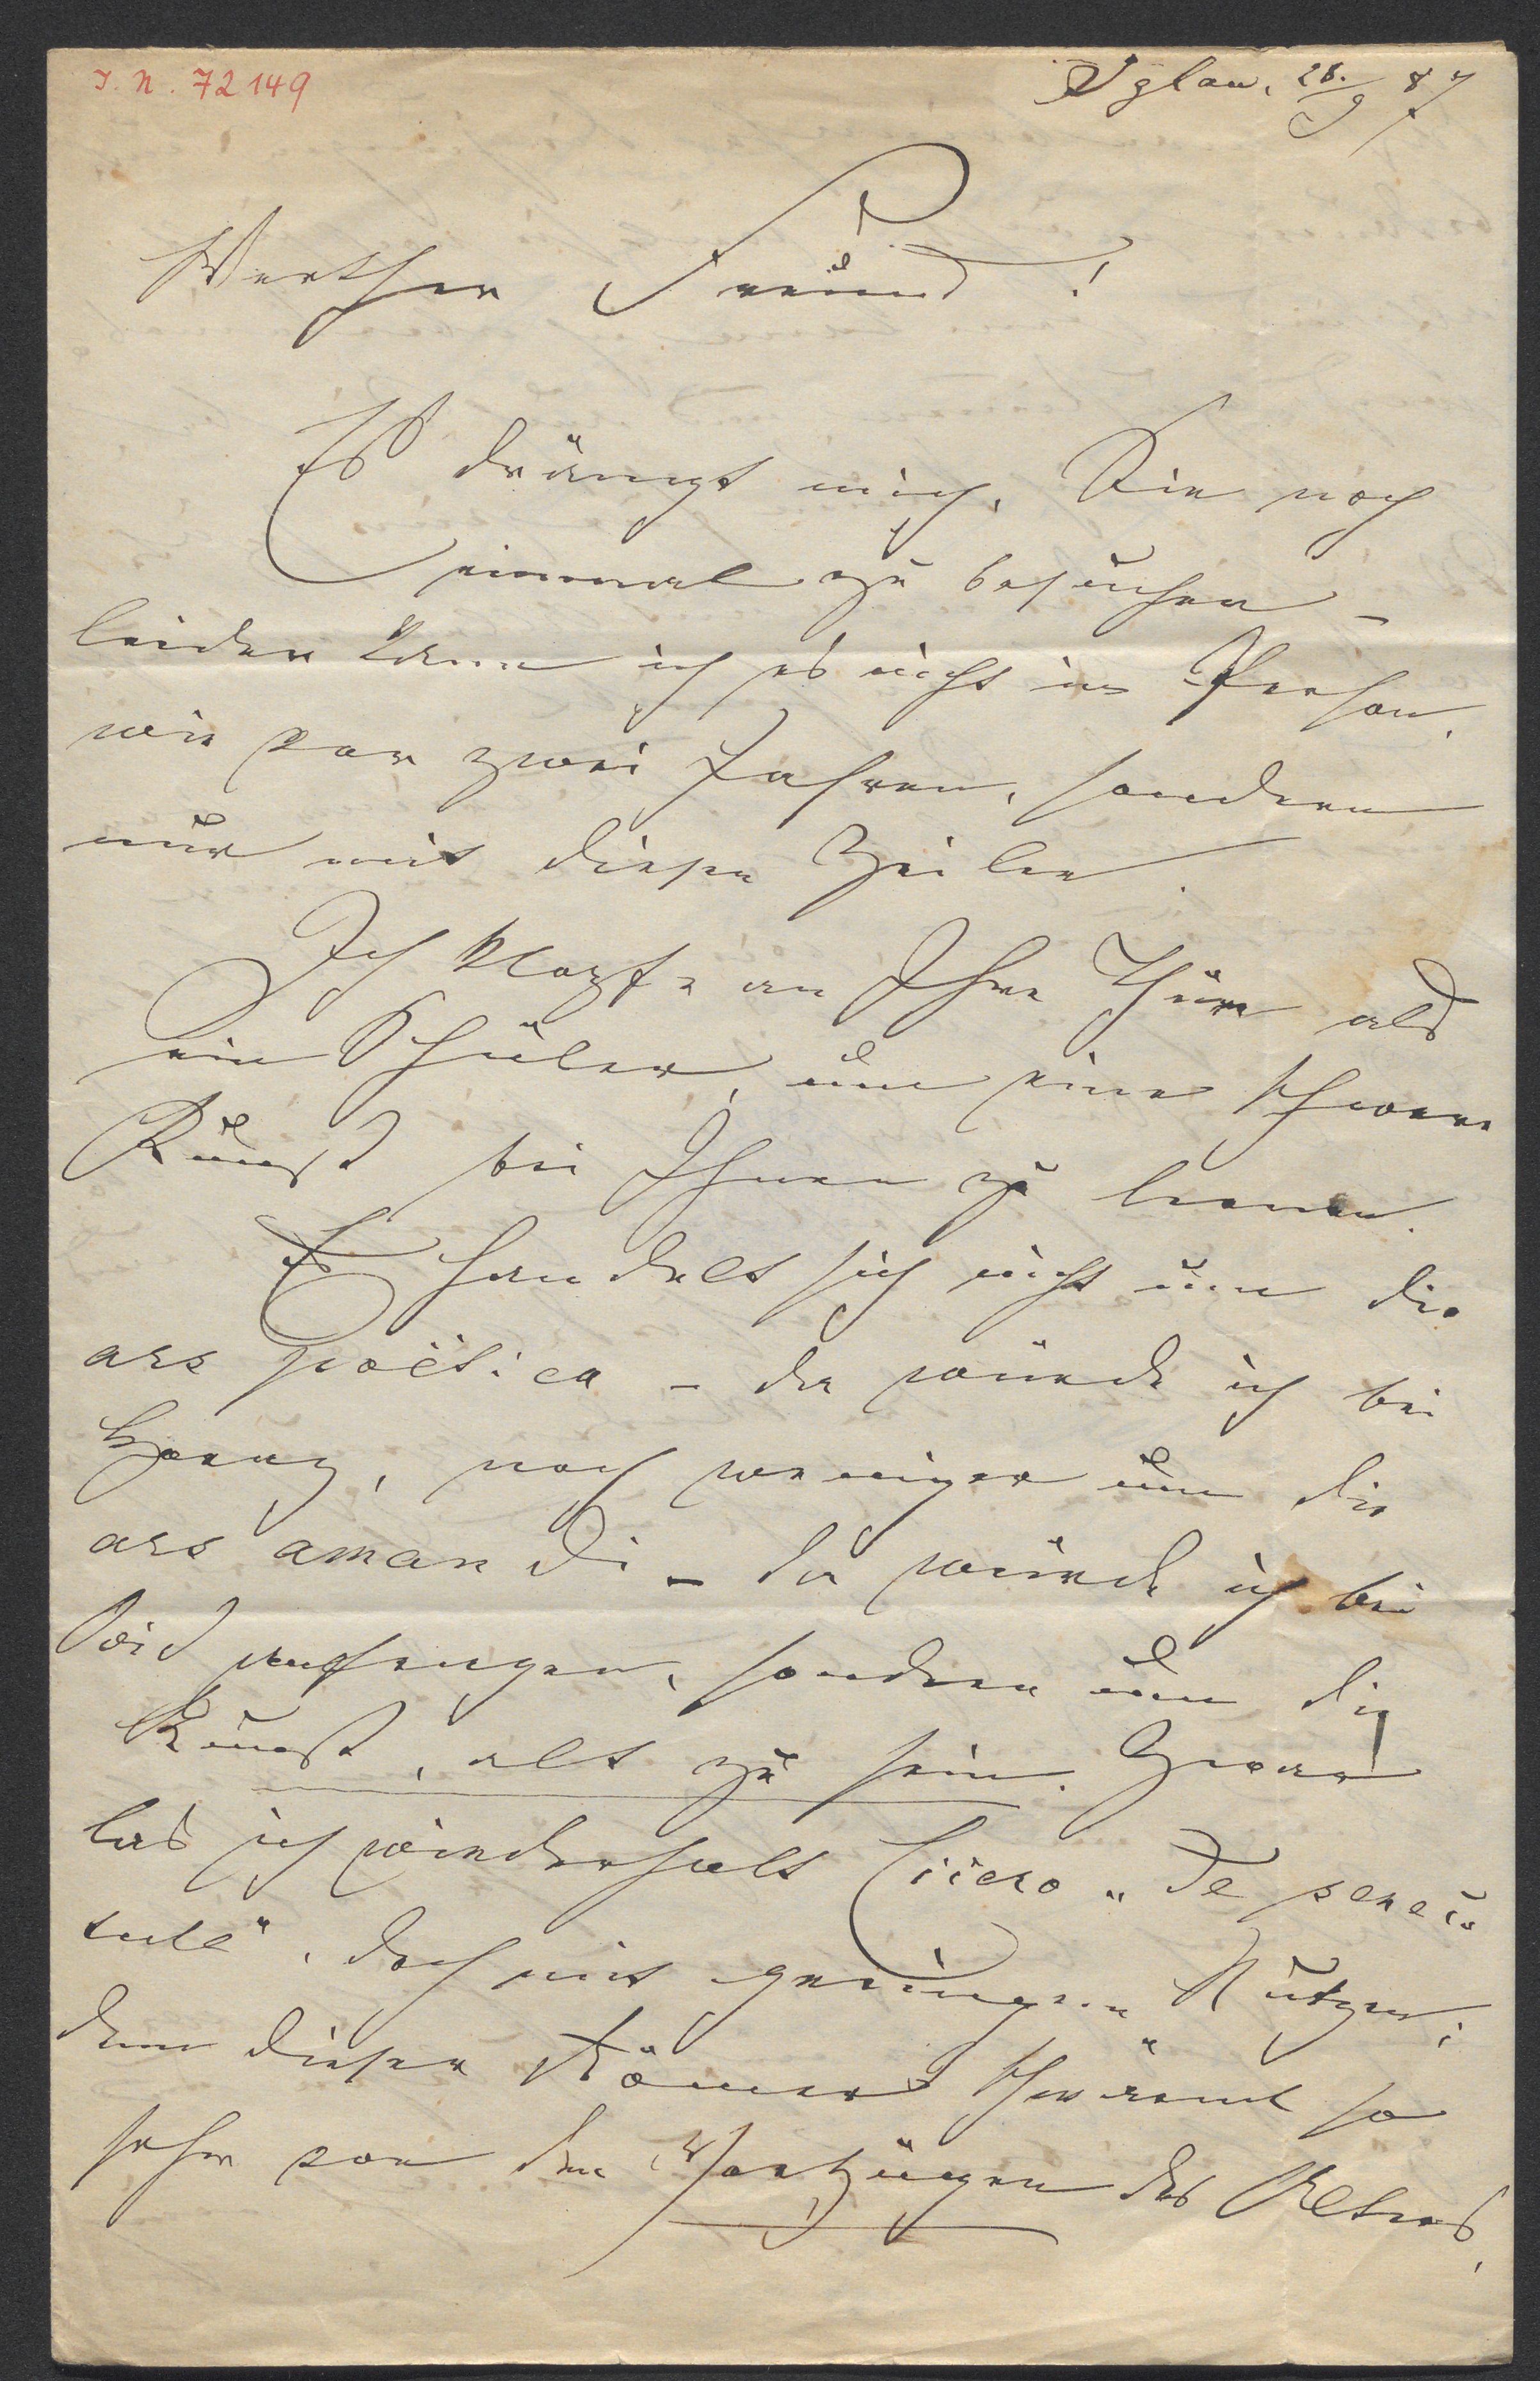 I. N. 72149
Iglau, 28./9 87
Werther Freund!
Es drängt mich, Sie noch
einmal zu besuchen –
leider kann ich es nicht in Person,
wie vor zwei Jahren, sondern
nur mit diesen Zeilen.
Ich klopfe an Ihre Thüre als
ein Schüler, um eine schwere
Kunst bei Ihnen zu lernen.
Es handelt sich nicht um die
ars poëtica – da würde ich bei
Horaz, noch weniger um die
ars amandi – da würde ich bei
Ovid anfangen, sondern um die
Kunst, alt zu sein. Zwar
las ich wiederholt Cicero „De senec-
tute“, doch mit geringem Nutzen;
denn dieser Römer schwärmt so
sehr von den Vorzügen des Alters,